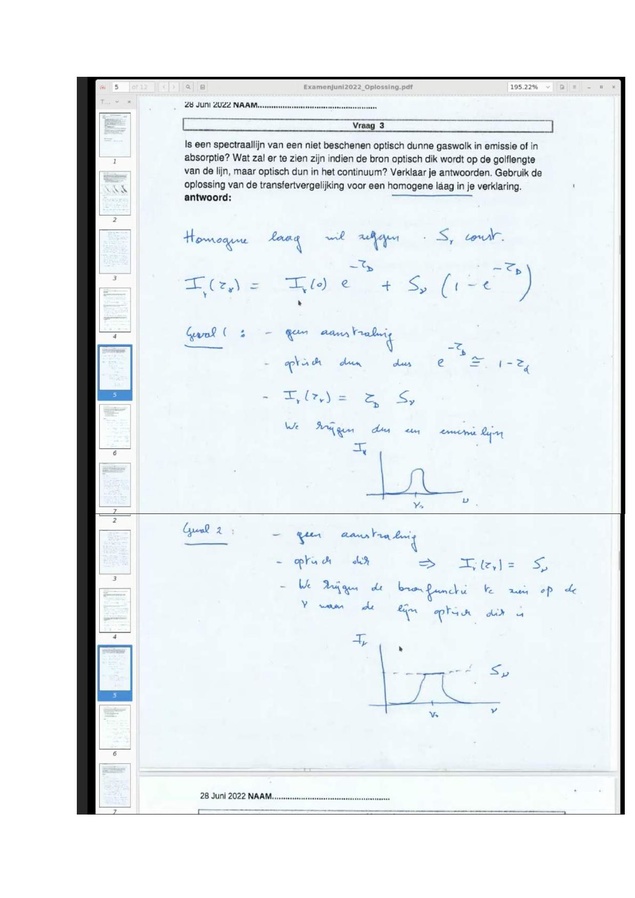 5 of 13
Examenjuni2022_Oplossing.pdf
195.22%
28 Juni 2022 NAAM
Vraag 3
Is een spectraallijn van een niet beschenen optisch dunne gaswolk in emissie of in
absorptie? Wat zal er te zien zijn indien de bron optisch dik wordt op de golflengte
van de lijn, maar optisch dun in het continuum? Verklaar je antwoorden. Gebruik de
oplossing van de transfertvergelijking voor een homogene laag in je verklaring.
antwoord:
Homogene laag wil zeggen Sν const.
Iν(τν) = Iν(0) e^-τν + Sν (1 - e^-τν)
Geval 1 : - geen aanstraling
- optisch dun dus e^-τν ≅ 1 - τν
- Iν(τν) = τν Sν
We krijgen dus een emissielijn
Iν
ν₀ ν
Geval 2 : - geen aanstraling
- optisch dik ⇒ Iν(τν) = Sν
- We krijgen de bronfunctie te zien op de
ν waar de lijn optisch dik is
Iν
Sν
ν₀ ν
28 Juni 2022 NAAM
1
2
3
4
5
6
7
2
3
4
5
6
7